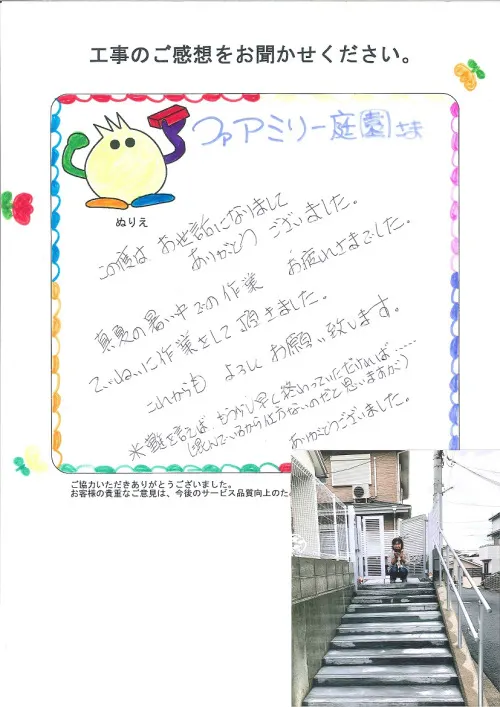 工事のご感想をお聞かせください。
ファアミリー庭園さま
ぬりえ
この度は お世話になりまして
ありがとう ございました。
真夏の暑い中での作業 お疲れさまでした。
ていねいに作業をして頂きました。
これからも よろしく お願い致します。
※難を言えば、もう少し早く終わっていただければ.....
(混んでいるから仕方ないのだと思いますが)
ありがとうございました。
ご協力いただきありがとうございました。
お客様の貴重なご意見は、今後のサービス品質向上のた